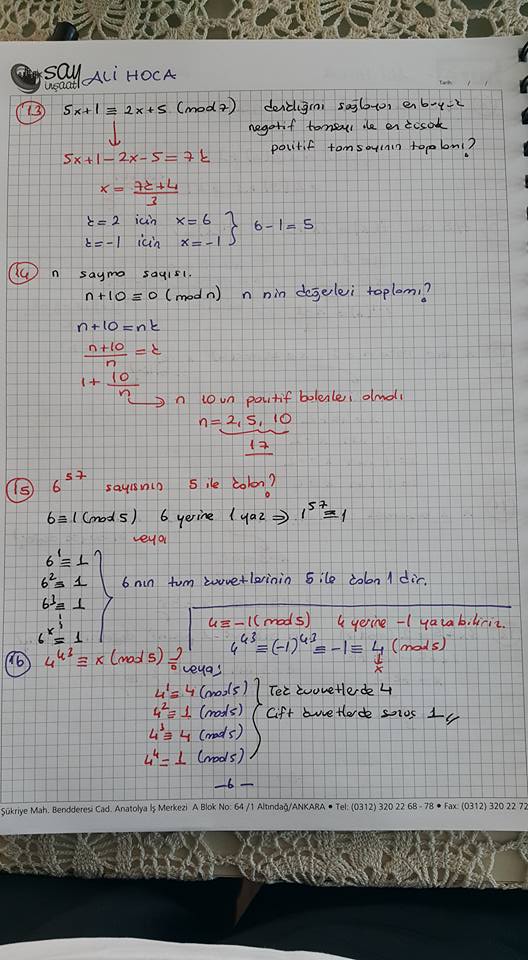 say
inşaat
ALİ HOCA
Tarih: / /
13 5x+1 ≡ 2x+5 (mod 7) denkliğini sağlayan en büyük
negatif tamsayı ile en küçük
pozitif tamsayının toplamı?
5x+1-2x-5 = 7k
x = 7k+4 / 3
k=2 icin x=6
k=-1 icin x=-1
6-1=5
14 n sayma sayısı.
n+10 ≡ 0 (mod n) n nin değerleri toplamı?
n+10 = nk
n+10 / n = k
1 + 10 / n
n 10 un pozitif bolenleri olmalı
n = 2, 5, 10
17
15 6^57 sayısının 5 ile kalan?
6 ≡ 1 (mod 5) 6 yerine 1 yaz ⇒ 1^57 ≡ 1
veya
6^1 ≡ 1
6^2 ≡ 1
6^3 ≡ 1
6^x ≡ 1
6 nın tum kuvvetlerinin 5 ile kalan 1 dir.
4 ≡ -1 (mod 5) 4 yerine -1 yazabiliriz.
4^43 ≡ (-1)^43 ≡ -1 ≡ 4 (mod 5)
x
16 4^43 ≡ x (mod 5) ?
veya;
4^1 ≡ 4 (mod 5)
4^2 ≡ 1 (mod 5)
4^3 ≡ 4 (mod 5)
4^4 = 1 (mod 5)
Tek kuvvetlerde 4
Çift kuvvetlerde sonuç 1
-6-
Şükriye Mah. Bendderesi Cad. Anatolya İş Merkezi A Blok No: 64 /1 Altındağ/ANKARA • Tel: (0312) 320 22 68 - 78 • Fax: (0312) 320 22 72